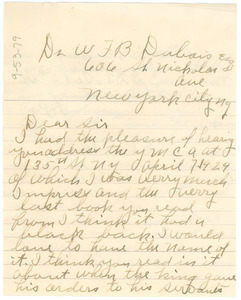 9-53-79
Dr W F B Dubois
606 St Nicholas
ave
New York City Ny
Dear Sir
I had the pleasure of hearing
you address the y m C a at
135 st Ny april 7th 29
of which I was verry much
Impress and the verry
last book you read
from I think it had a
black back. I would
love to have the name of
it. I think you read in it
about when the King gave
his orders to his servants